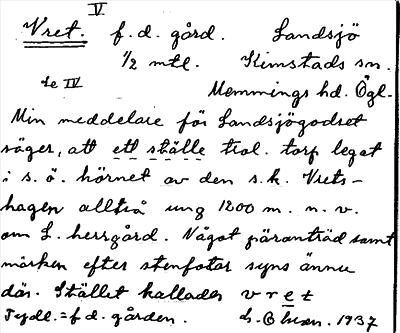 V
Vret. f.d. gård. Landsjö
1/2 mtl. Kimstads sn.
se IV Memmings hd. Ögl.
Min meddelare för Landsjögodset
säger, att ett ställe trol. torp legat
i s. ö. hörnet av den s.k. Vrets-
hagen alltså ung 1200 m. n. v.
om L. herrgård. Något päronträd samt
märken efter stenfotar syns ännu
där. Stället kallades vret
Tydl. = f d. gården. 1937